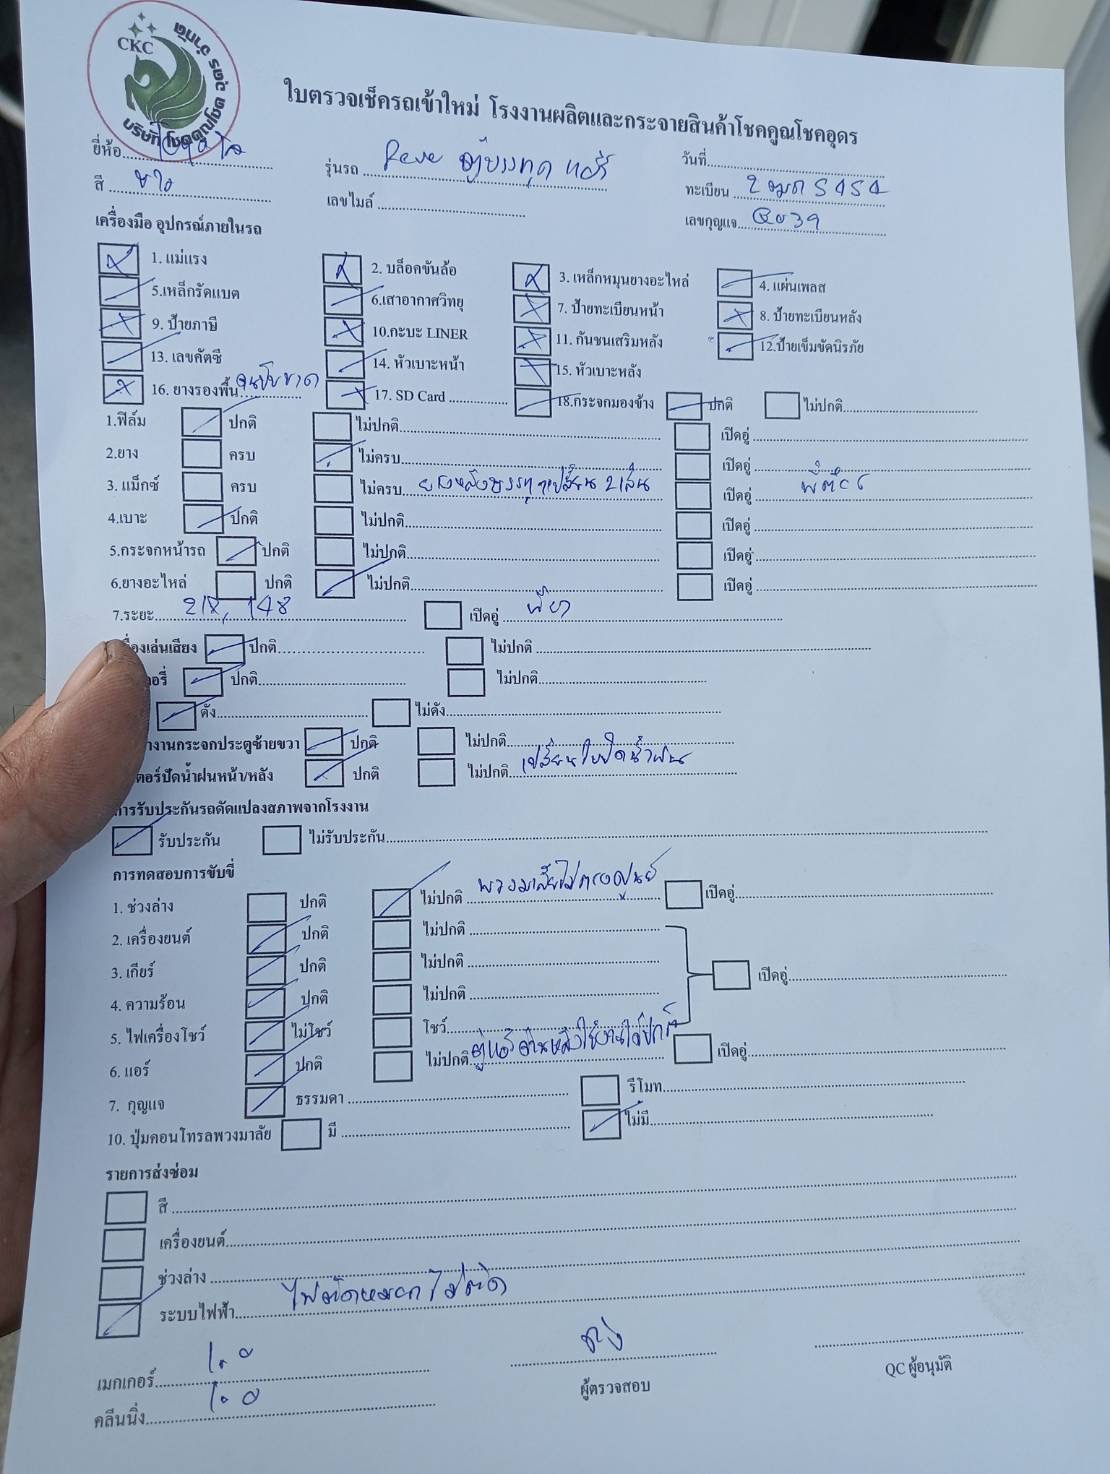 CKC
บริษัท โชคคูณโชค อุดร จำกัด
ใบตรวจเช็ครถเข้าใหม่ โรงงานผลิตและกระจายสินค้าโชคคูณโชคอุดร
ยี่ห้อ รุ่นรถ Revo ตู้บรรทุก แอร์ วันที่
สี ขาว เลขไมล์ ทะเบียน
เลขกุญแจ
เครื่องมือ อุปกรณ์ภายในรถ
1. แม่แรง 2. บล็อคขันล้อ 3. เหล็กหมุนยางอะไหล่ 4. แผ่นเพลส
5.เหล็กรัดแบต 6.เสาอากาศวิทยุ 7. ป้ายทะเบียนหน้า 8. ป้ายทะเบียนหลัง
9. ป้ายภาษี 10.กะบะ LINER 11. กันชนเสริมหลัง 12.ป้ายเข็มขัดนิรภัย
13. เลขคัตซี 14. หัวเบาะหน้า 15. หัวเบาะหลัง
16. ยางรองพื้น 17. SD Card 18.กระจกมองข้าง ปกติ ไม่ปกติ
1.ฟิล์ม ปกติ ไม่ปกติ เปิดอยู่
2.ยาง ครบ ไม่ครบ เปิดอยู่
3. แม็กซ์ ครบ ไม่ครบ ยางหลังบรรทุกเปลี่ยน 2 เส้น เปิดอยู่
4.เบาะ ปกติ ไม่ปกติ เปิดอยู่
5.กระจกหน้ารถ ปกติ ไม่ปกติ เปิดอยู่
6.ยางอะไหล่ ปกติ ไม่ปกติ เปิดอยู่
7.ระยะ 218,148 เปิดอยู่
องเล่นเสียง ปกติ ไม่ปกติ
อรี่ ปกติ ไม่ปกติ
ดัง ไม่ดัง
งานกระจกประตูซ้ายขวา ปกติ ไม่ปกติ
ตอร์ปัดน้ำฝนหน้า/หลัง ปกติ ไม่ปกติ เปลี่ยนใบปัดน้ำฝน
การรับประกันรถดัดแปลงสภาพจากโรงงาน
รับประกัน ไม่รับประกัน
การทดสอบการขับขี่
1. ช่วงล่าง ปกติ ไม่ปกติ พวงมาลัยไม่ตรงศูนย์ เปิดอยู่
2. เครื่องยนต์ ปกติ ไม่ปกติ
3. เกียร์ ปกติ ไม่ปกติ เปิดอยู่
4. ความร้อน ปกติ ไม่ปกติ
5. ไฟเครื่องโชว์ ไม่โชว์ โชว์
6. แอร์ ปกติ ไม่ปกติ ตู้แอร์ด้านหลังใช้งานได้ปกติ เปิดอยู่
7. กุญแจ ธรรมดา รีโมท
10. ปุ่มคอนโทรลพวงมาลัย มี ไม่มี
รายการส่งซ่อม
สี
เครื่องยนต์
ช่วงล่าง
ระบบไฟฟ้า ไฟตัดหมอกไม่ติด
เมกเกอร์
ผู้ตรวจสอบ
QC ผู้อนุมัติ
คลีนนิ่ง